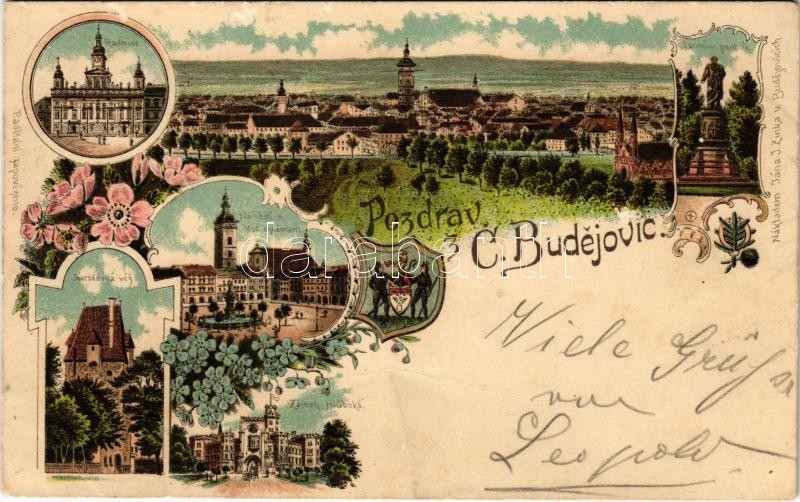 Radnice.
Pozdrav
z Č. Budějovic.
Náměstí s
Starodávná věž
Zámek Hluboká.
Nákladem Jana J. Zinka v Budějovicích
darabanth
Viele Grüße
von
Leopold